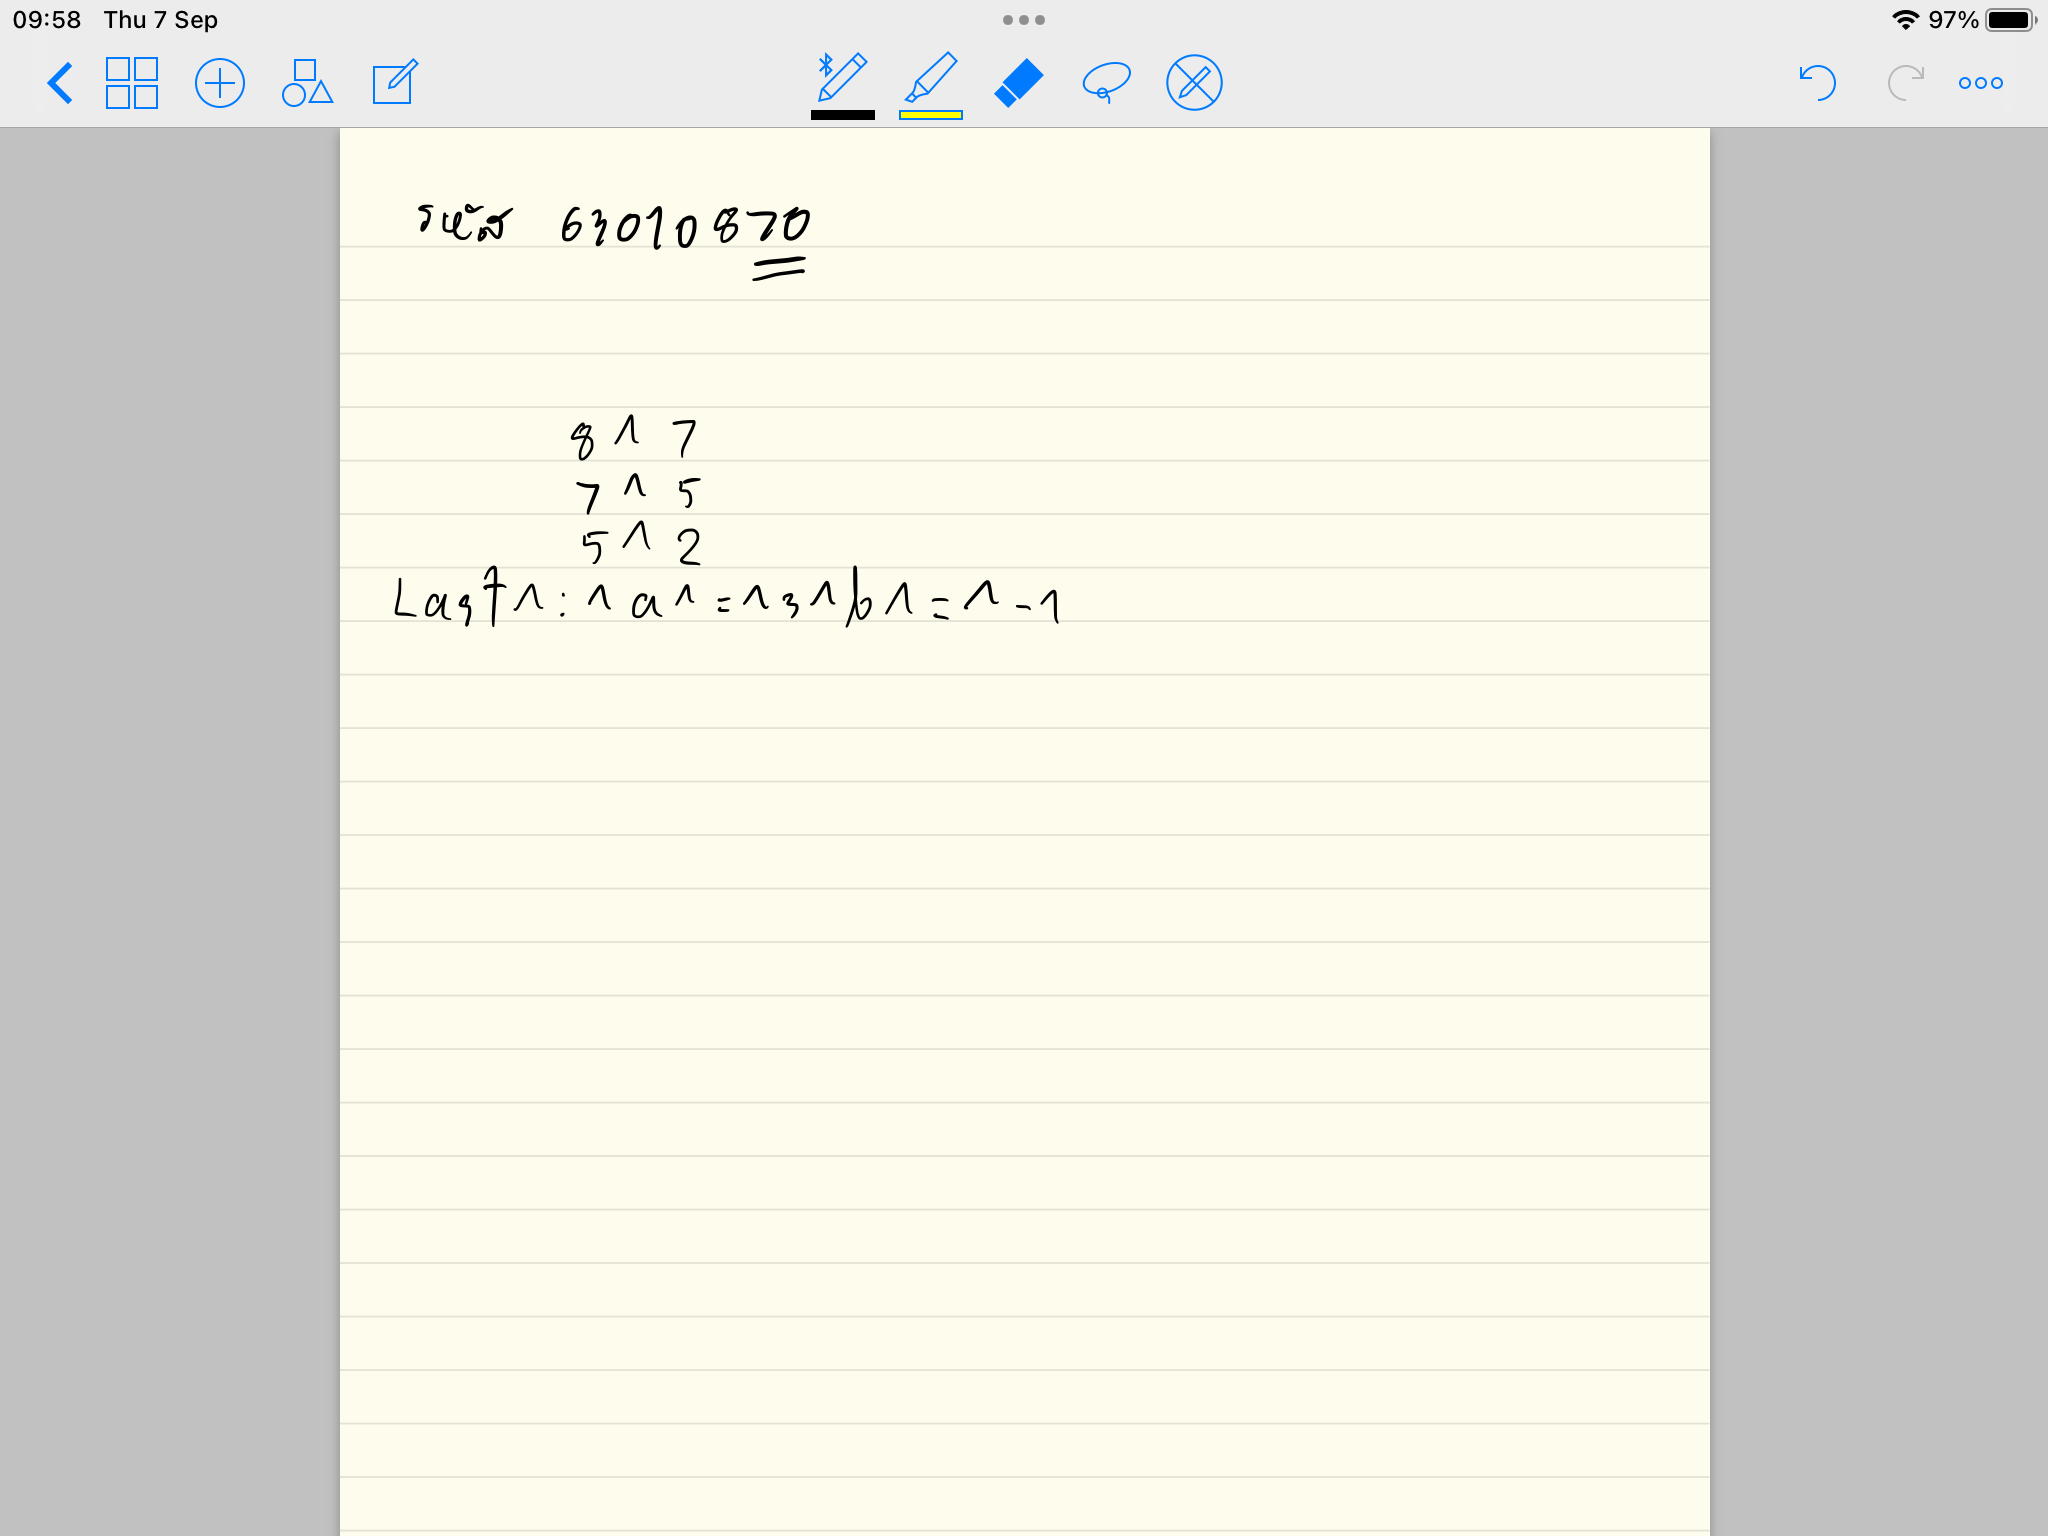 09:58 Thu 7 Sep 97%
รหัส 63010870
8 ^ 7
7 ^ 5
5 ^ 2
Last ^ : ^ a ^ = ^ 3 ^ / b ^ = ^ - 1